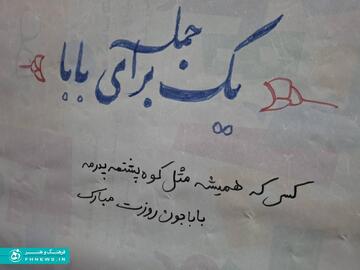 یک جمله برای بابا
کسی که همیشه مثل کوه پشتمه پدرمه
باباجون روزت مبارک
فرهنگ و هنر
FHNEWS.IR